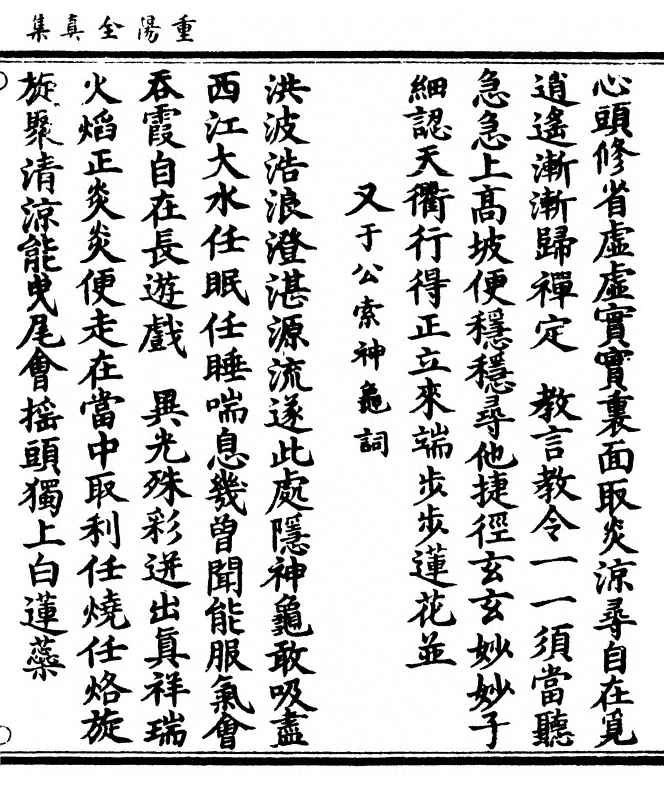 重陽全真集
心頭修省虛虛實實裏面取炎涼尋自在覓
逍遙漸漸歸禪定　教言教令一一須當聽
急急上高坡便穩穩尋他捷徑玄玄妙妙子
細認天衢行得正立來端步步蓮花並
又于公索神龜詞
洪波浩浪澄湛源流遂此處隱神龜敢吸盡
西江大水任眠任睡喘息幾曾聞能服氣會
吞霞自在長遊戲　異光殊彩迸出眞祥瑞
火熖正炎炎便走在當中取利任燒任烙旋
旋聚清涼能曳尾會摇頭獨上白蓮蘂